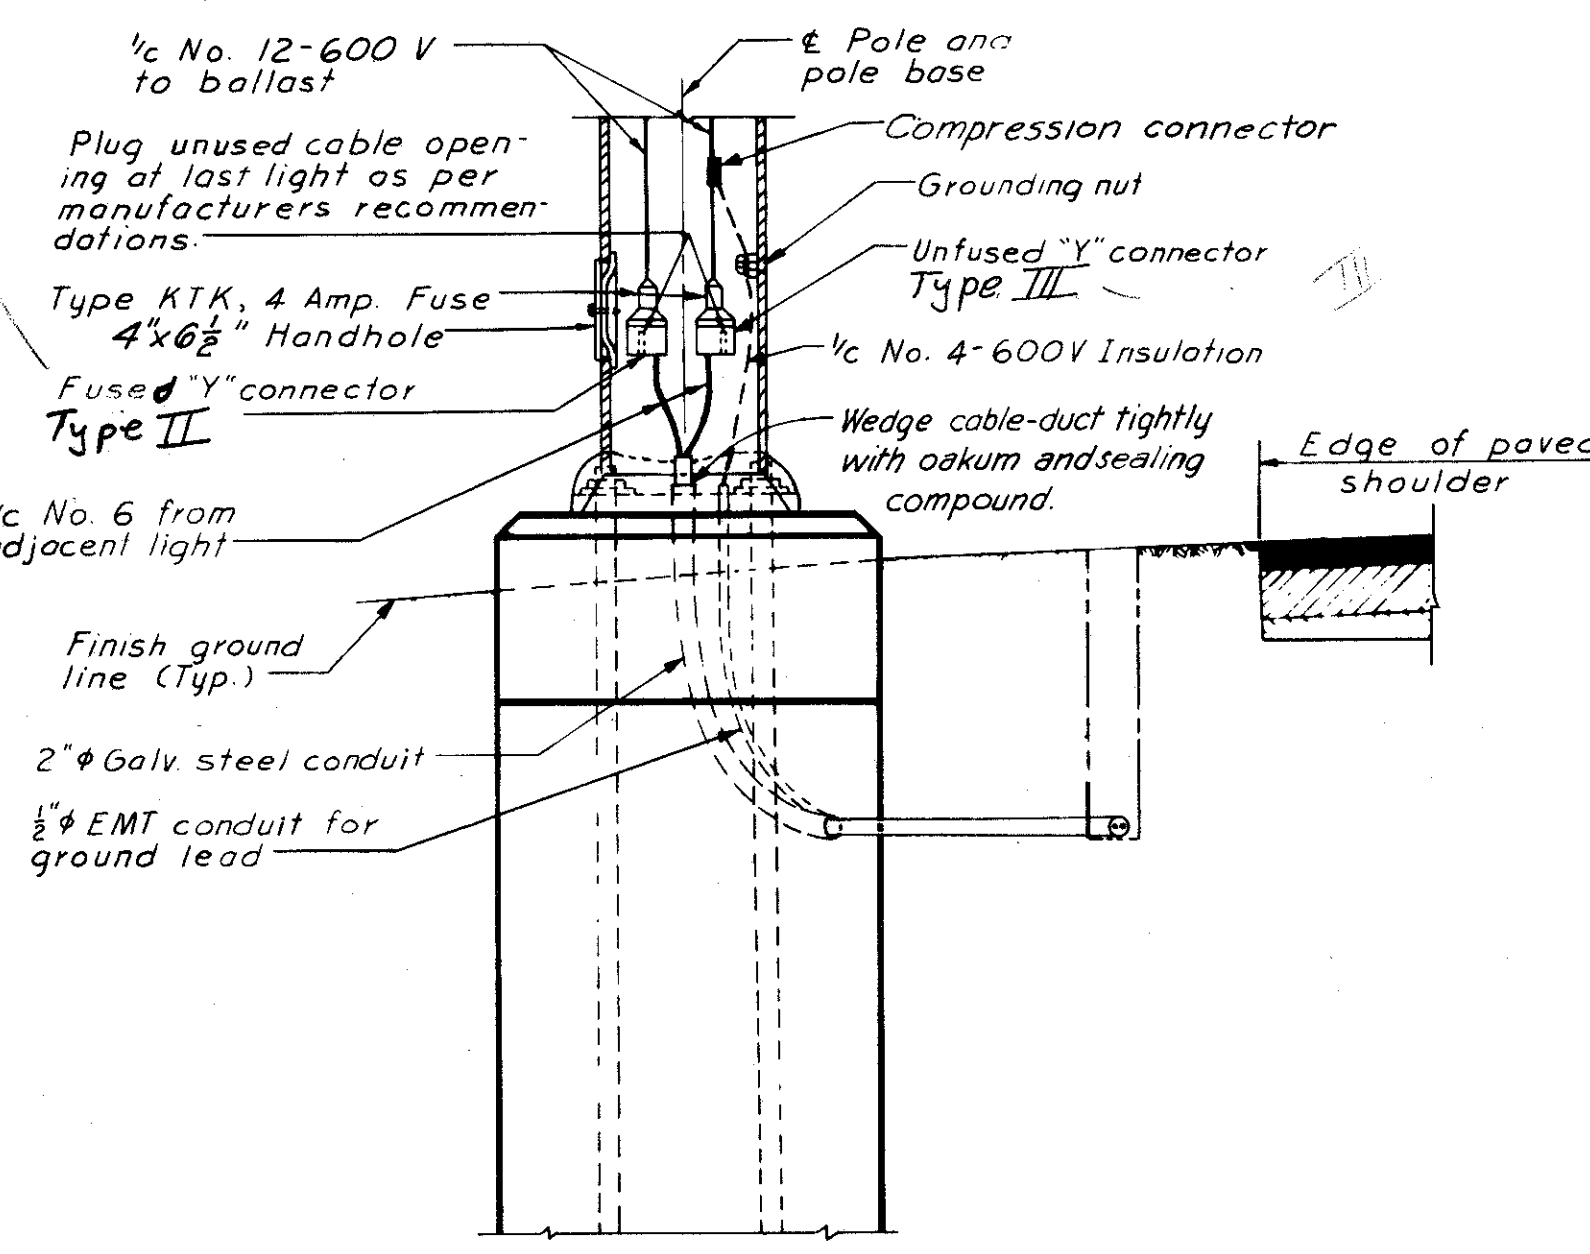 1/c No. 12-600 V
to ballast
℄ Pole and
pole base
Plug unused cable open-
ing at last light as per
manufacturers recommen-
dations.
Compression connector
Grounding nut
Unfused "Y" connector
Type III
III
Type KTK, 4 Amp. Fuse
4"x6 1/2" Handhole
1/c No. 4-600V Insulation
Fused "Y" connector
Type II
Wedge cable-duct tightly
with oakum and sealing
compound.
Edge of paved
shoulder
/c No. 6 from
adjacent light
Finish ground
line (Typ.)
2"ϕ Galv. steel conduit
1/2"ϕ EMT conduit for
ground lead